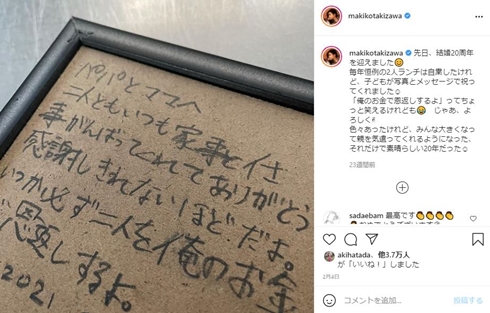 パパとママへ
二人ともいつも家事と仕
事がんばってくれてありがとう
感謝しきれないほどだよ。
いつか必ず二人を俺のお金
で恩返しするよ。
2021
makikotakizawa
makikotakizawa 先日、結婚20周年
を迎えました😊
毎年恒例の2人ランチは自粛したけれ
ど、子どもが写真とメッセージで祝っ
てくれました☺
「俺のお金で恩返しするよ」ってちょ
っと笑えるけれども😂 じゃあ、よ
ろしく✌
色々あったけれど、みんな大きくなっ
て親を気遣ってくれるようになった、
それだけで素晴らしい20年だった☺
23週間前
sadaebam 最高です👏👏👏👏
akihatada、他3.7万人
が「いいね！」しました
2月4日
コメントを追加...
投稿する